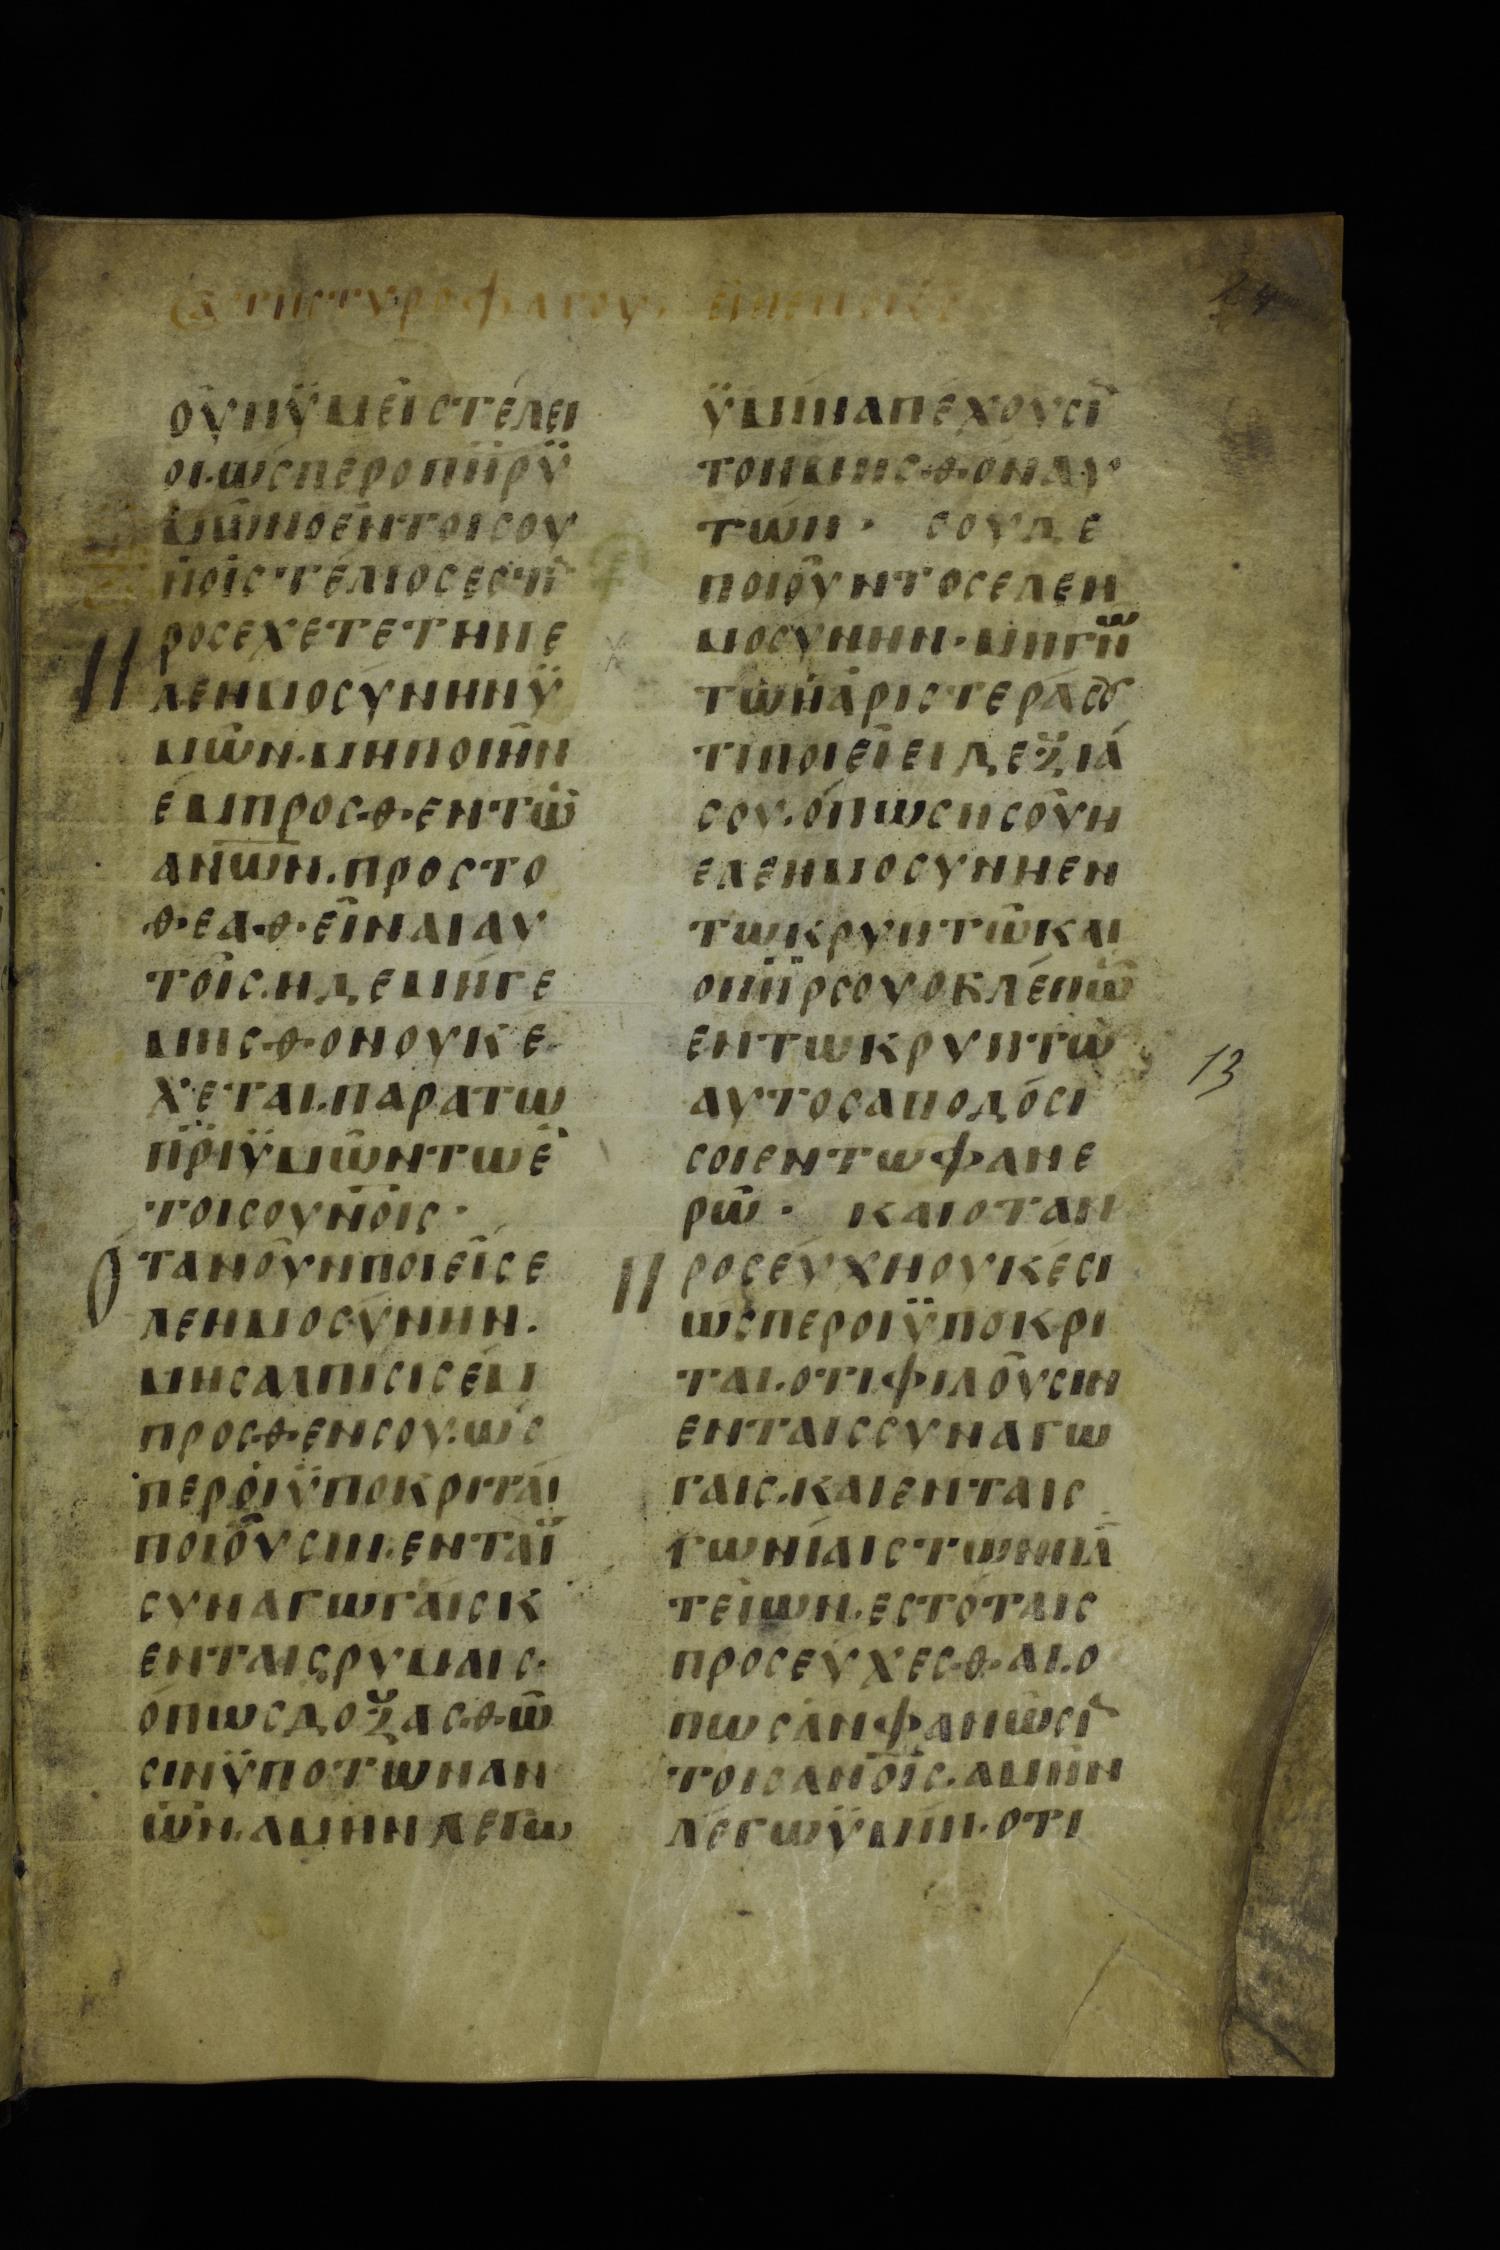 Σα τῆς τυροφάγου.
24
ουνϋμεῖστέλει
οι.ὡσπεροπη̄ρϋ
μῶνοεντοισου
νοῖστέλιοσεστῑ
Προσεχετετηνε
λεημοσυνηνϋ
μῶν.μηποιῆν
ἔμπροσθεντῶ
ανω̄ν.προστο
θεαθεῖναιαυ
τοῖς.ηδεμήγε
μισθονουκε
χεται.παρατω
πρ̄ιϋμῶντωἐ
τοισουνοῖς·
Ὅτανοῦνποιεῖσε
λεημοσύνην.
μησαλπισισέμ
προσθενσου.ὡς
περοἱϋποκριταί
ποιοῦσιν.ενταῖ
συναγωγαῖσκ
ενταισρυμαις·
όπωσδοξασθῶ
σινϋποτωναν
ων.αμηνλεγω
ϋμῖναπέχουσῑ
τονμισθοναυ
τῶν· σουδε
ποιοῦντοσελεη
μοσυνην·μηγνω
τωἡἀριστεράσου
τιποιεῖειδεξιά
σου.όπωσησοῦη
ελεημοσυνηεν
τωκρυπτῶκαι
οπη̄ρσουοβλέπω̄
εντωκρυπτῶ
αυτοσαποδόσι
σοιεντωφανε
ρῶ· καιοταν
Προσεύχηουκέσι
ὡσπεροιϋποκρι
ται.οτιφιλοῦσιν
ενταισσυναγω
γαις.καιενταις
γωνίαιστωνπλα
τειων.εστόταις
προσευχεσθαι.ο
πωσάνφανῶσῑ
τοισανοῖς.αμὴν
λέγωϋμῖν.οτι
13